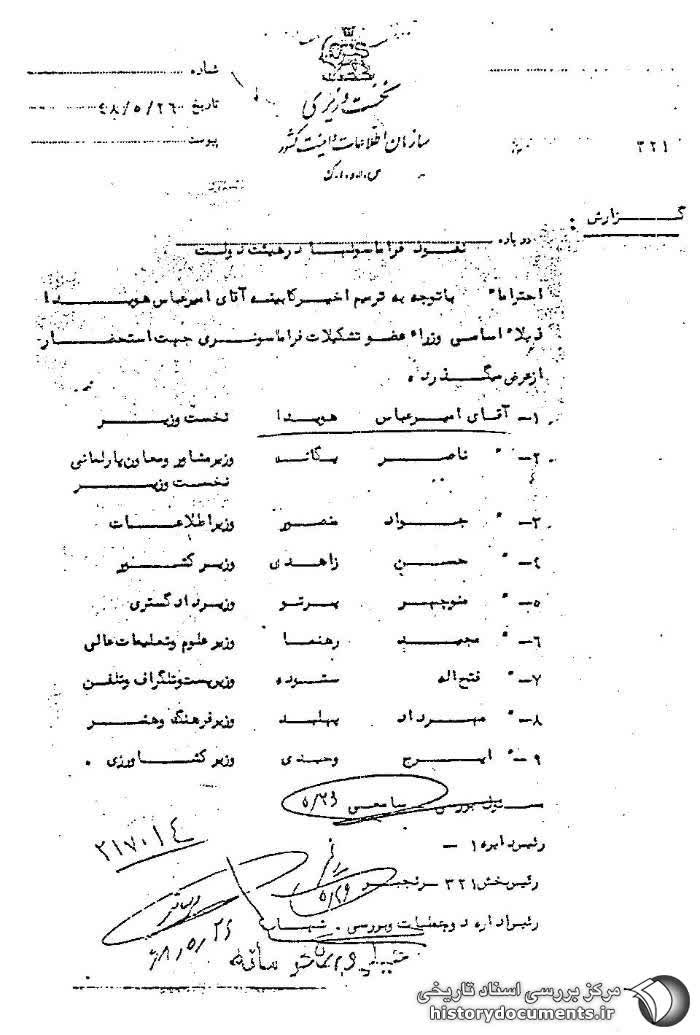 شماره
نخست وزیری
تاریخ ۴۸/۵/۲۶
سازمان اطلاعات و امنیت کشور
پیوست
۳۲۱
گزارش :
درباره نفوذ فراماسونها در هیئت دولت
احتراما" باتوجه به ترمیم اخیر کابینه آقای امیرعباس هویدا
ذیلا" اسامی وزراء عضو تشکیلات فراماسونری جهت استحضار
از عرض میگذرد.
۱- آقای امیرعباس هویدا نخست وزیر
۲- " ناصر یگانه وزیر مشاور و معاون پارلمانی
نخست وزیر
۳- " جواد منصور وزیر اطلاعات
۴- " حسن زاهدی وزیر کشور
۵- " منوچهر پرتو وزیر دادگستری
۶- " مجید رهنما وزیر علوم و تعلیمات عالی
۷- " فتح اله ستوده وزیر پست و تلگراف و تلفن
۸- " مهرداد پهلبد وزیر فرهنگ و هنر
۹- " ایرج وحیدی وزیر کشاورزی .
مسئول بررسی ۵/۲۶
رئیس دایره ۱ -
۲۱۷۰۱۴
رئیس بخش ۳۲۱ - رنجبر ۵/۲۹
رئیس اداره دوم عملیات و بررسی . شهاب
۴۸/۵/۲۶
مرکز بررسی اسناد تاریخی
historydocuments.ir